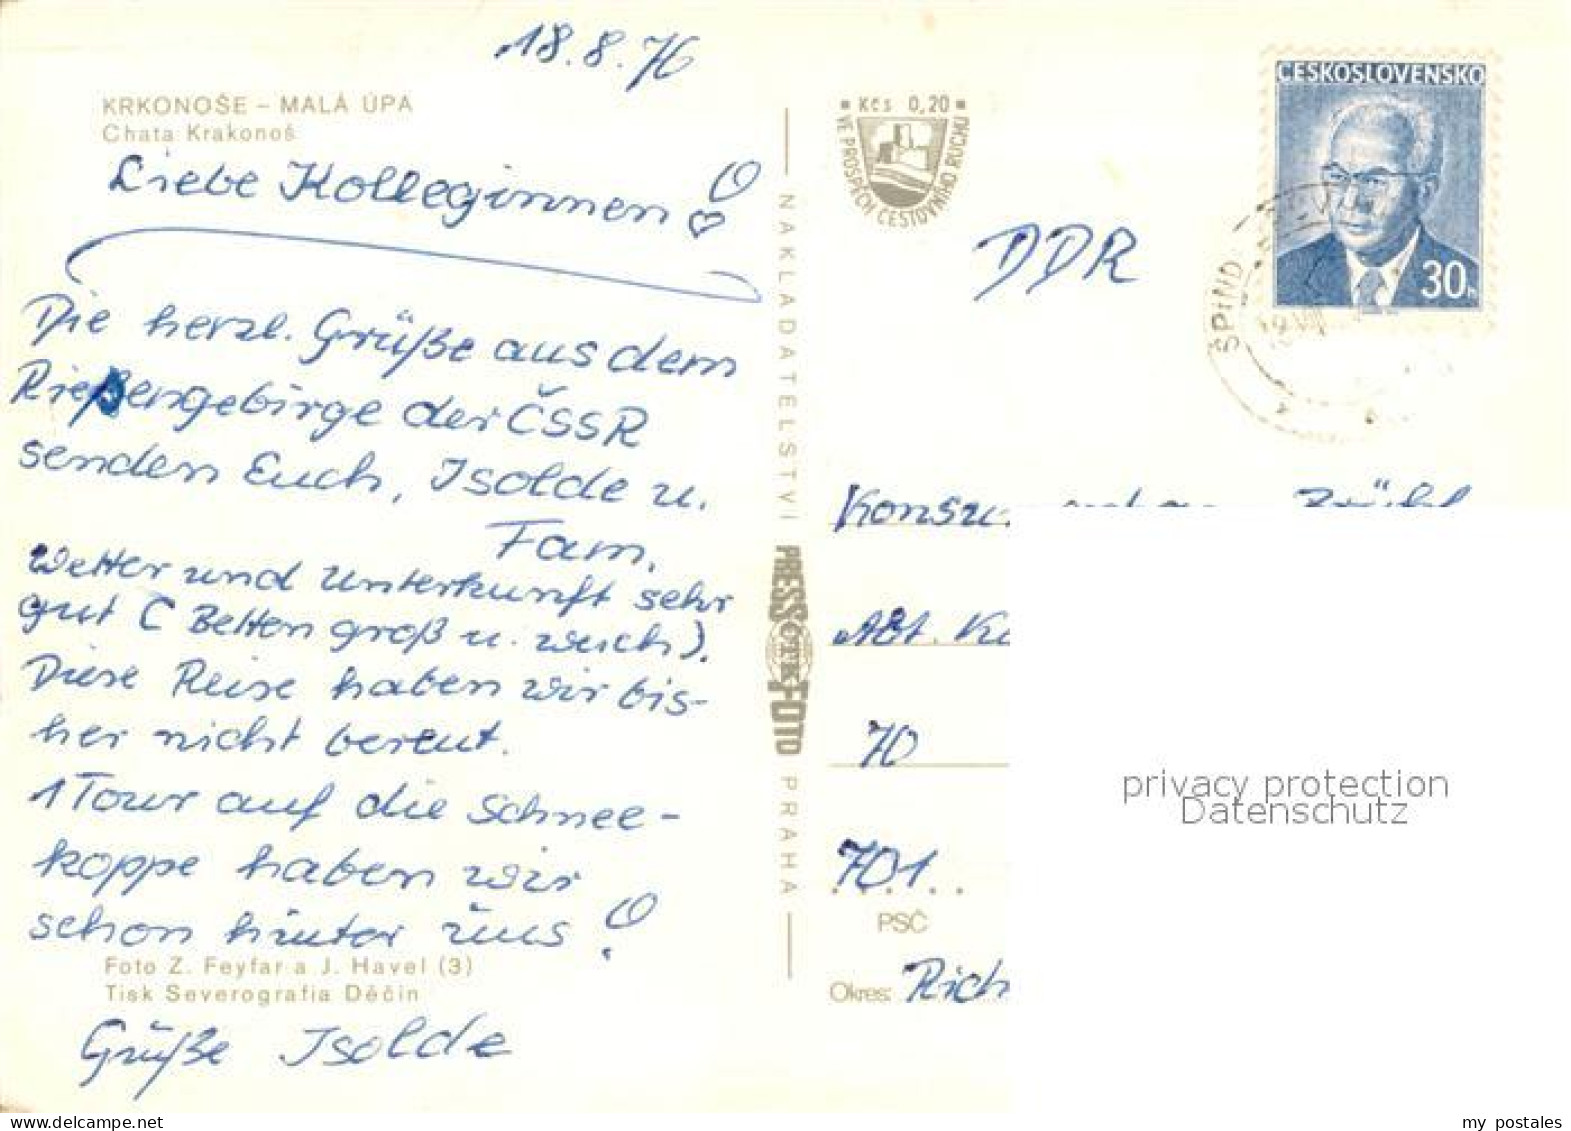 18.8.76
KRKONOŠE – MALÁ ÚPA
Chata Krakonoš
Liebe Kolleginnen!
Die herzl. Grüße aus dem
Rießengebirge der ČSSR
senden Euch, Isolde u.
Fam.
Wetter und Unterkunft sehr
gut ( Betten groß u. weich).
Diese Reise haben wir bis-
her nicht bereut.
1 Tour auf die Schnee-
koppe haben wir
schon hinter uns!
Foto Z. Feyfar a J. Havel (3)
Tisk Severografia Děčín
Grüße Isolde
NAKLADATELSTVÍ PRESSFOTO PRAHA
ČTK
Kčs 0,20
VE PROSPĚCH CESTOVNÍHO RUCHU
ČESKOSLOVENSKO
30h
ŠPIND
DDR
Abt.
70
701
PSČ
Okres: Rich
privacy protection
Datenschutz
my postales